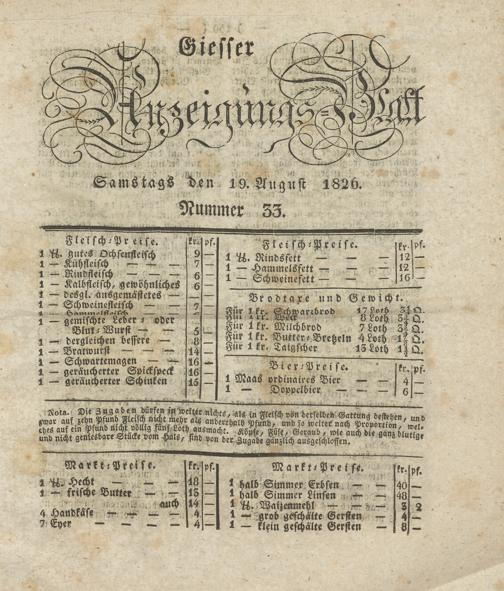 Giesser
Anzeigungs-Blatt
Samstags den 19. August 1826.
Nummer 33.
Fleisch-Preise. kr. pf.
1 ℔. gutes Ochsenfleisch 9 —
1 — Kuhfleisch — — 7 —
1 — Rindfleisch — — 6
1 — Kalbfleisch, gewöhnliches 6
1 — desgl. ausgemästetes — —
1 — Schweinefleisch — —
1 — Hammelfleisch
1 — gemischte Leber- oder
Blut-Wurst — — 5
1 — dergleichen bessere — 8
1 — Bratwurst — — 14 —
1 — Schwartemagen — 16
1 — geräucherter Spickspeck 16
1 — geräucherter Schinken 15
Fleisch-Preise. kr. pf.
1 ℔. Rindsfett — — 12 —
1 — Hammelsfett — — 12 —
1 — Schweinefett — — 16 —
Brodtaxe und Gewicht.
Für 1 kr. Schwarzbrod 17 Loth Q.
Für 1 kr. Weck 8 Loth Q.
Für 1 kr. Milchbrod 7 Loth Q.
Für 1 kr. Butter-Bretzeln 4 Loth Q.
Für 1 kr. Taigscher 15 Loth Q.
Bier-Preise. kr. pf.
1 Maas ordinaires Bier — 4 —
1 — Doppelbier — — 6 —
Nota. Die Zugaben dürfen in weiter nichts, als in Fleisch von derselben Gattung bestehen, und
zwar auf zehn Pfund Fleisch nicht mehr als anderthalb Pfund, und so weiter nach Proportion, wel-
ches auf ein Pfund nicht völlig fünf Loth ausmacht. Köpfe, Füße, Geraub, wie auch die ganz blutige
und nicht geniesbare Stücke vom Hals, sind von der Zugabe gänzlich ausgeschlossen.
Markt-Preise. kr. pf.
1 ℔. Hecht — — — 18 —
1 — frische Butter — — 13 —
auch 14
4 Handkäse — — — — 4 —
7 Eyer — — — — 4 —
Markt-Preise. kr. pf.
1 halb Simmer Erbsen — — 40 —
1 halb Simmer Linsen — — 48
1 ℔. Waizenmehl — — — 3 2
1 — grob geschälte Gersten — 4 —
1 — klein geschälte Gersten — 8 —